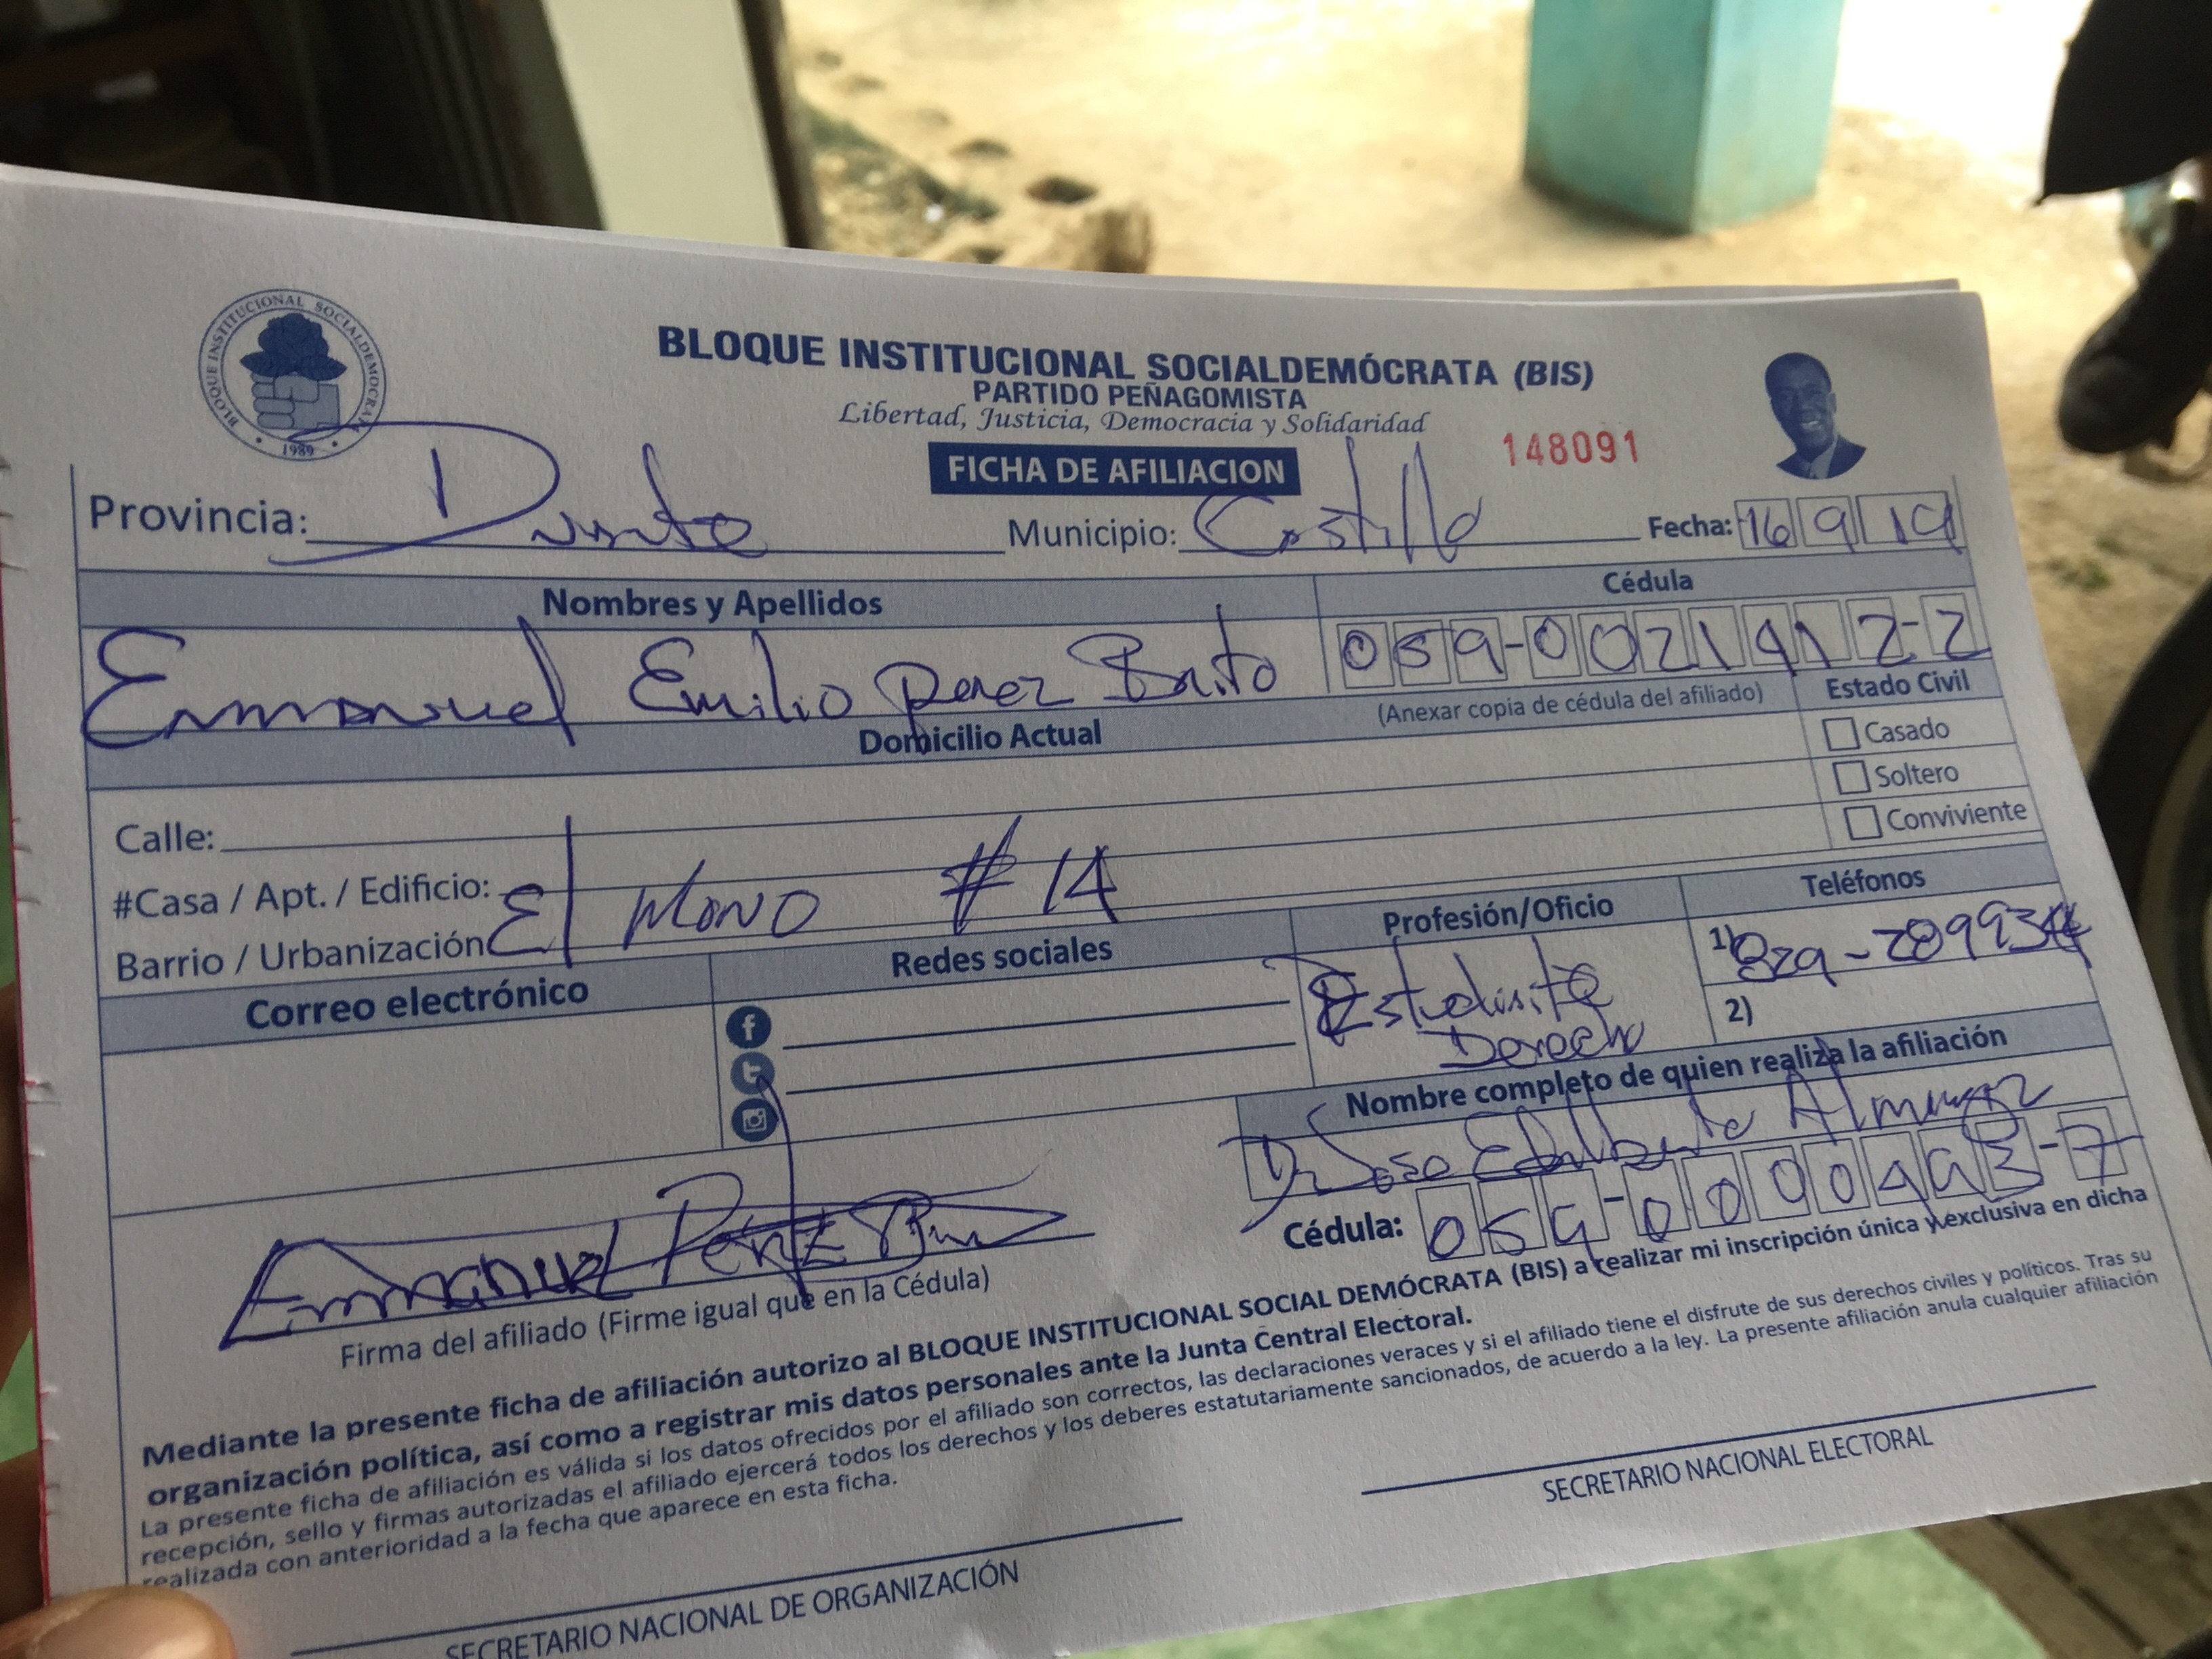 BLOQUE INSTITUCIONAL SOCIALDEMOCRATA
1989
BLOQUE INSTITUCIONAL SOCIALDEMÓCRATA (BIS)
PARTIDO PEÑAGOMISTA
Libertad, Justicia, Democracia y Solidaridad
FICHA DE AFILIACION
148091
Provincia: Duarte Municipio: Castillo Fecha: 16 9 19
Nombres y Apellidos Cédula
Emmanuel Emilio perez Brito 059-0021412-2
(Anexar copia de cédula del afiliado) Estado Civil
Domicilio Actual
Casado
Soltero
Conviviente
Calle:
#Casa / Apt. / Edificio:
Barrio / Urbanización El Mono # 14
Correo electrónico Redes sociales Profesión/Oficio Teléfonos
Estudiante
Derecho
1) 829-
2)
Nombre completo de quien realiza la afiliación
Jose Almanzar
Cédula: 059-0000493-7
Emmanuel Pérez
Firma del afiliado (Firme igual que en la Cédula)
Mediante la presente ficha de afiliación autorizo al BLOQUE INSTITUCIONAL SOCIAL DEMÓCRATA (BIS) a realizar mi inscripción única y exclusiva en dicha
organización política, así como a registrar mis datos personales ante la Junta Central Electoral.
La presente ficha de afiliación es válida si los datos ofrecidos por el afiliado son correctos, las declaraciones veraces y si el afiliado tiene el disfrute de sus derechos civiles y políticos. Tras su
recepción, sello y firmas autorizadas el afiliado ejercerá todos los derechos y los deberes estatutariamente sancionados, de acuerdo a la ley. La presente afiliación anula cualquier afiliación
realizada con anterioridad a la fecha que aparece en esta ficha.
SECRETARIO NACIONAL DE ORGANIZACIÓN
SECRETARIO NACIONAL ELECTORAL